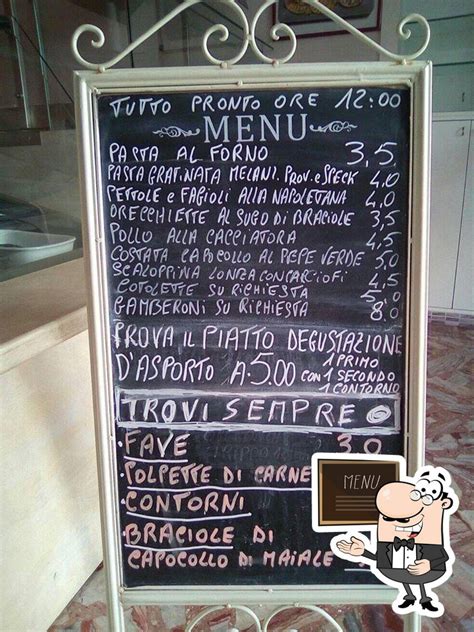 TUTTO PRONTO ORE 12:00
MENU
PASTA AL FORNO 3,5
PASTA GRATINATA MELANZ. PROV. e SPECK 4,0
PETTOLE e FAGIOLI ALLA NAPOLETANA 4,0
ORECCHIETTE AL SUGO DI BRACIOLE 3,5
POLLO ALLA CACCIATORA 4,5
COSTATA CAPOCOLLO AL PEPE VERDE 5,0
SCALOPPINA LONZA CON CARCIOFI 4,5
COTOLETTE SU RICHIESTA 5,0
GAMBERONI SU RICHIESTA 8,0
PROVA IL PIATTO DEGUSTAZIONE
D'ASPORTO A 5.00 CON 1 PRIMO
1 SECONDO
1 CONTORNO
TROVI SEMPRE
FAVE 3,0
POLPETTE DI CARNE
CONTORNI
BRACIOLE DI
CAPOCOLLO DI MAIALE
MENU